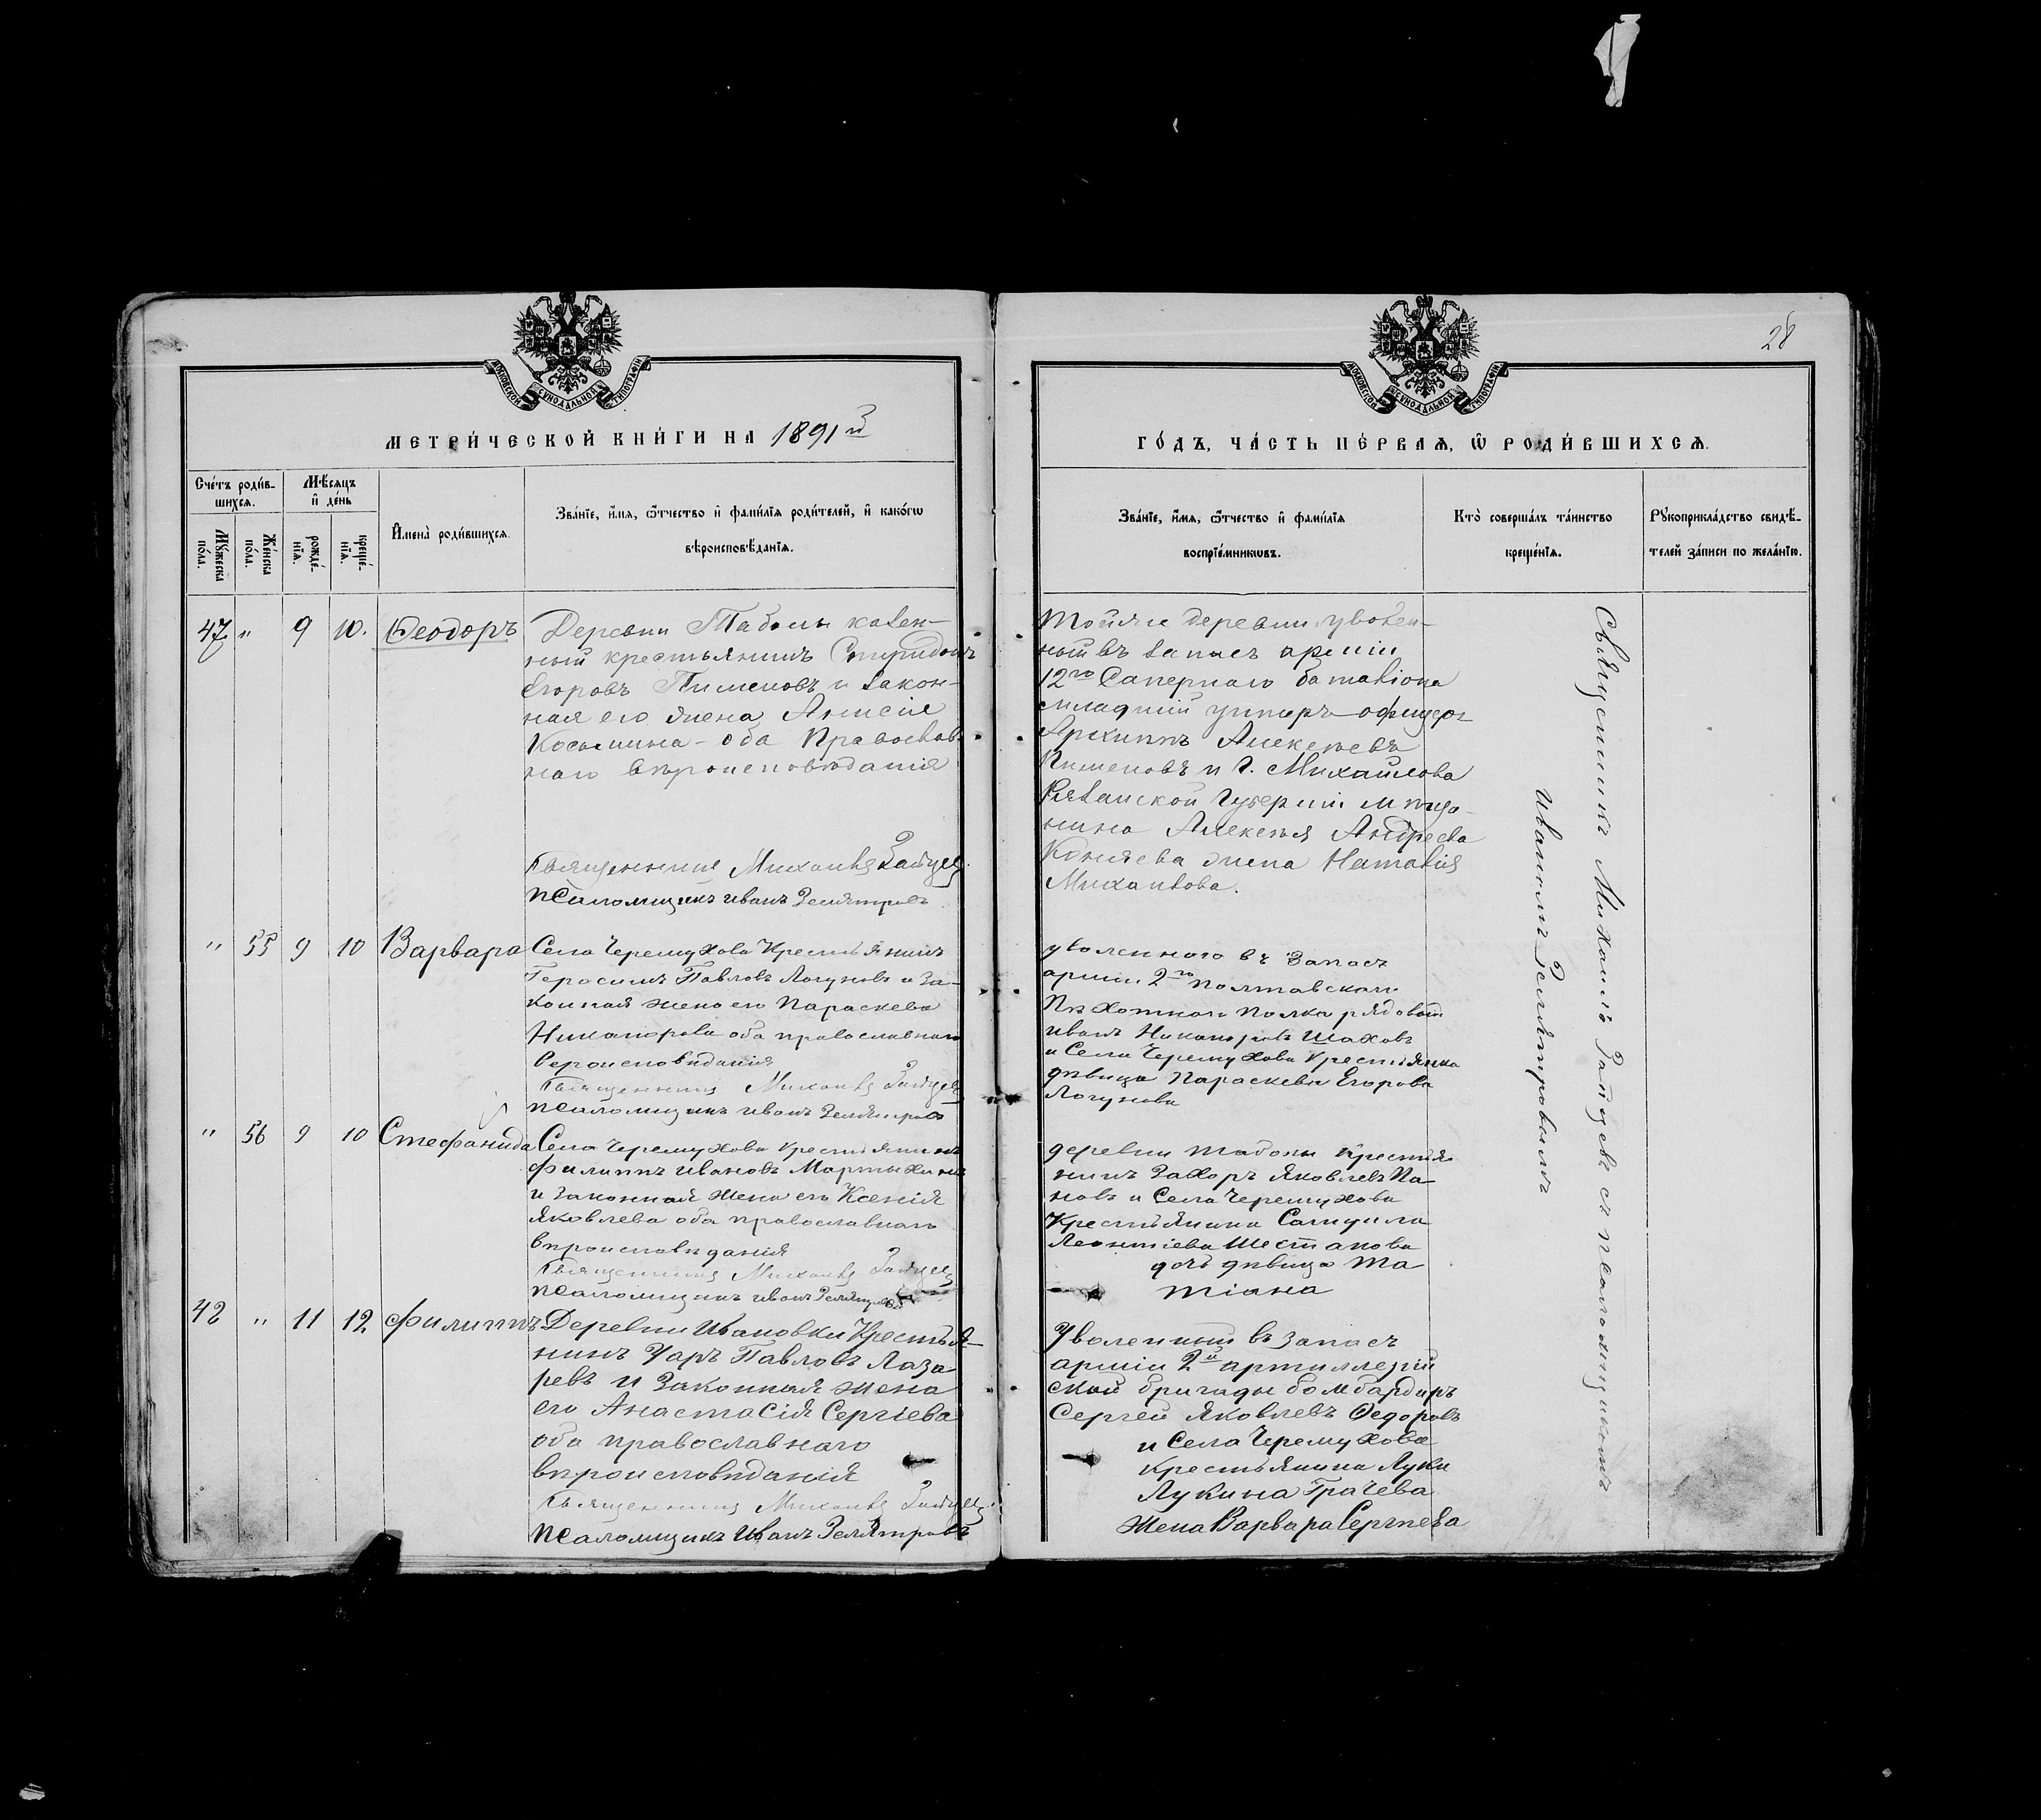 28
МОСКОВСКОЙ СѴНОДАЛЬНОЙ ТИПОГРАФІИ
МОСКОВСКОЙ СѴНОДАЛЬНОЙ ТИПОГРАФІИ
МЕТРИ́ЧЕСКОЙ КНИ́ГИ НА 1891й
ГО́ДЪ, ЧА́СТЬ ПЕ́РВАѦ, Ѡ҆ РОДИ́ВШИХСѦ.
Сче́тъ роди́в-
шихсѧ.
Мѣ́сѧцъ
и҆ де́нь
Мꙋ́жеска
по́ла.
Же́нска
по́ла.
рожде́-
нїѧ.
креще́-
нїѧ.
И҆мена̀ роди́вшихсѧ.
Зва́нїе, и҆́мѧ, ѻ҆́тчество и҆ фами́лїѧ роди́телей, и҆ како́гѡ
вѣроисповѣ́данїѧ.
Зва́нїе, и҆́мѧ, ѻ҆́тчество и҆ фами́лїѧ
воспрїе́мникѡвъ.
Кто̀ соверша́лъ та́инство
креще́нїѧ.
Рꙋкоприкла́дство свидѣ́-
телей за́писи по жела́нїю.
47 " 9 10. Ѳеодоръ
Деревни Таболы казен-
ный крестьянинъ Спиридонъ
Егоровъ Пименовъ и закон-
ная его жена Анисія
Косьмина - оба Православ-
наго вѣроисповѣданія
Священникъ Михаилъ Зайцевъ
Псаломщикъ Иванъ Землятровъ
Тойже деревни уволен-
ный въ запасъ арміи
12го Сапернаго баталіона
младшій унтеръ-офицеръ
Архиппъ Алексеевъ
Пименовъ и г. Михайлова
Рязанской Губерніи мѣща-
нина Алексѣя Андреева
Князева жена Наталія
Михаилова.
" 55 9 10 Варвара
Села Черемухова Крестьянинъ
Герасимъ Павловъ Логуновъ и за-
конная жена его Параскева
Никанорова оба православнаго
вероисповѣданія
Священникъ Михаилъ Зайцевъ
Псаломщикъ Иванъ Землятровъ
уволенного въ Запасъ
арміи 2го Полтавскаго
Пѣхотнаго Полка рядовой
Иванъ Никаноровъ Шаховъ
и Села Черемухова Крестьянка
дѣвица Параскева Егорова
Логунова
" 56 9 10 Стефанида
Села Черемухова Крестьянинъ
Филиппъ Ивановъ Мартыхинъ
и Законная жена его Ксенія
Яковлева оба православнаго
вѣроисповѣданія
Священникъ Михаилъ Зайцевъ
Псаломщикъ Иванъ Землятровъ
деревни Таболы Крестья
нинъ Захоръ Яковлевъ Па
новъ и Села Черемухова
Крестьянина Самуила
Леонтіева Шестакова
дочь дѣвица Та
тіана
48 " 11 12 Филиппъ
Деревни Ивановки Крестья-
нинъ Уаръ Павловъ Лаза
ревъ и Законная жена
его Анастасія Сергіева
оба православнаго
вѣроисповѣданія
Священникъ Михаилъ Зайцевъ
Псаломщикъ Иванъ Землятровъ
Уволенный въ запасъ
арміи 2й артиллерій
ской бригады бомбардиръ
Сергей Яковлевъ Ѳедоровъ
и Села Черемухова
Крестьянина Луки
Лукина Грачева
жена Варвара Сергѣева
Священникъ Михаилъ Зайцевъ съ псаломщикомъ
Иваномъ Землятровымъ